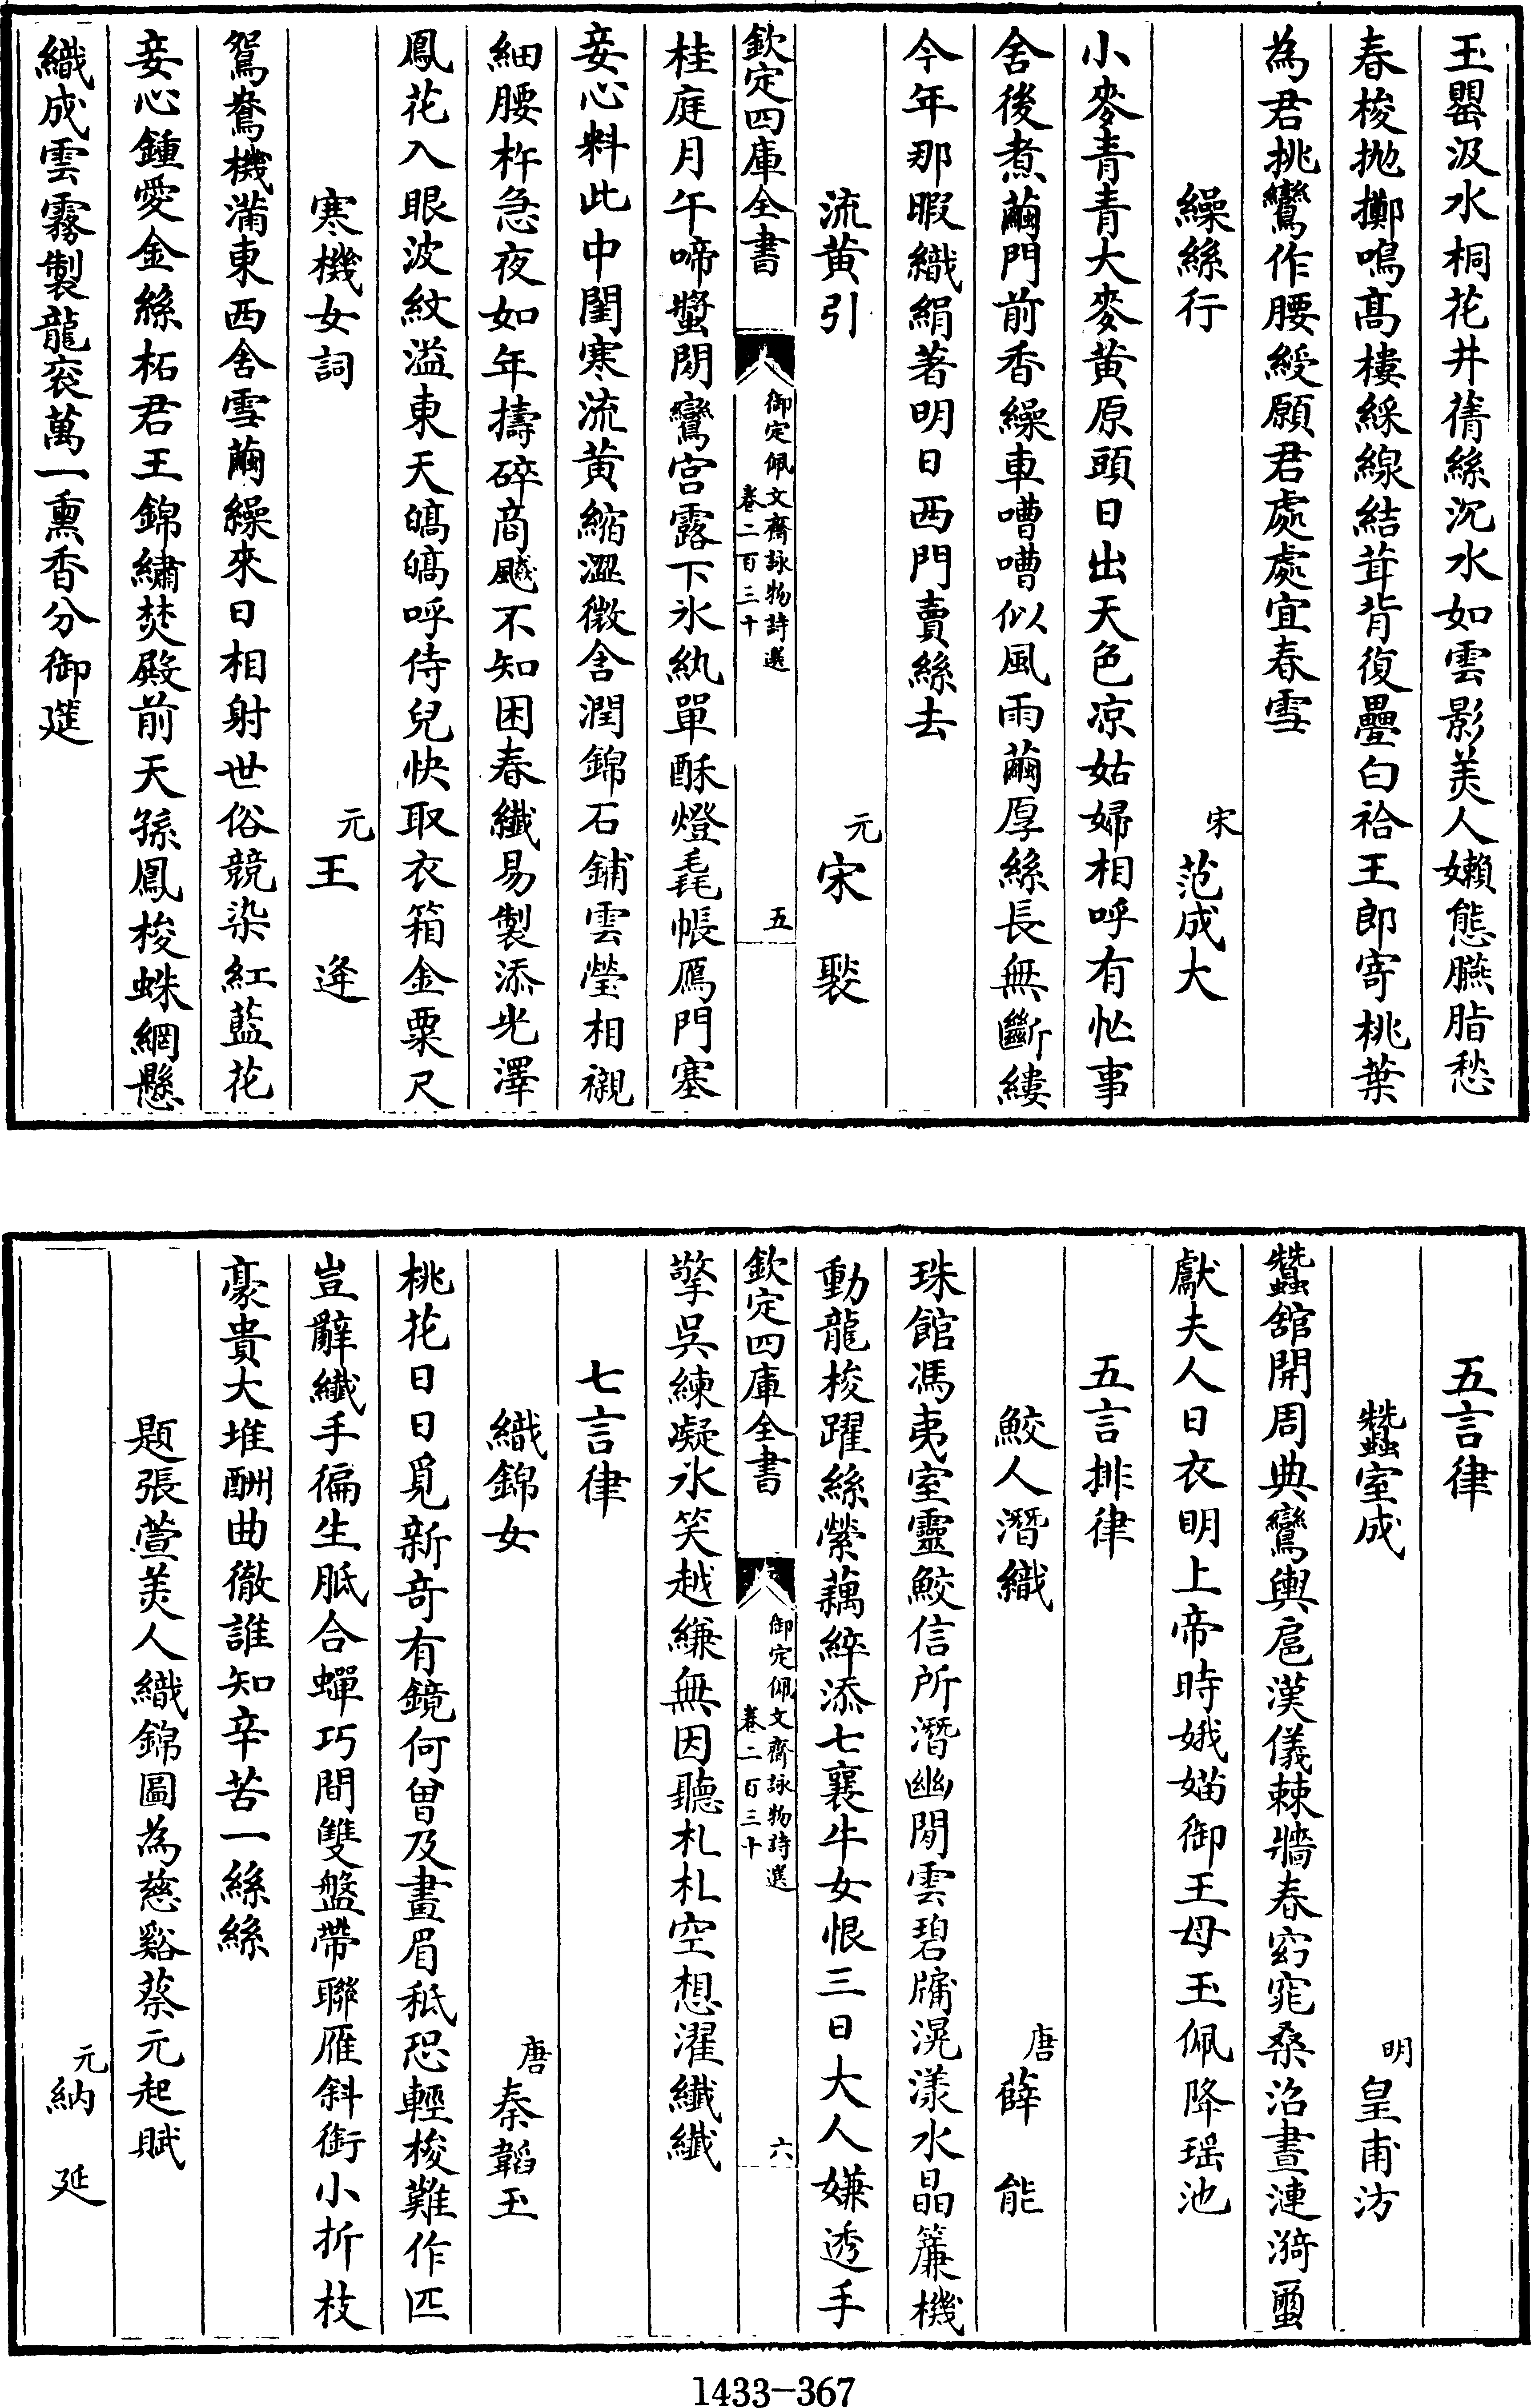 玉罌汲水桐花井蒨絲沉水如雲影美人嬾態臙脂愁
春梭抛擲鳴髙樓綵線結茸背復疊白袷王郎寄桃葉
為君挑鸞作腰綬願君處處宜春雪
繰絲行
宋范成大
小麥青青大麥黄原頭日出天色凉姑婦相呼有忙事
舍後煮繭門前香繰車嘈嘈似風雨繭厚絲長無斷縷
今年那暇織絹著明日西門賣絲去
流黄引
元宋褧
欽定四庫全書
御定佩文齋詠物詩選
卷二百三十
五
桂庭月午啼螿閒鸞宫露下氷紈單酥燈毳帳鴈門塞
妾心料此中閨寒流黄縮澀微含潤錦石鋪雲瑩相襯
細腰杵急夜如年擣碎商飈不知困春纖易製添光澤
鳳花入眼波紋溢東天皜皜呼侍兒快取衣箱金粟尺
寒機女詞
元王逄
鴛鴦機滿東西舍雪繭繰來日相射世俗競染紅藍花
妾心鍾愛金絲柘君王錦繡焚殿前天孫鳳梭蛛網懸
織成雲霧製龍衮萬一熏香分御筵
五言律
蠶室成
明皇甫汸
蠶舘開周典鸞輿扈漢儀棘牆春窈窕桑沼晝漣漪繭
獻夫人日衣明上帝時娥媌御王母玉佩降瑶池
五言排律
鮫人潛織
唐薛能
珠館馮夷室靈鮫信所潛幽閒雲碧牖滉漾水晶簾機
動龍梭躍絲縈藕綷添七襄牛女恨三日大人嫌透手
欽定四庫全書
御定佩文齋詠物詩選
卷二百三十
六
擎吳練凝氷笑越縑無因聽札札空想濯纖纖
七言律
織錦女
唐秦韜玉
桃花日日覓新奇有鏡何曾及畫眉秪恐輕梭難作匹
豈辭纖手徧生胝合蟬巧間雙盤帶聯雁斜銜小折枝
豪貴大堆酬曲徹誰知辛苦一絲絲
題張萱美人織錦圖為慈谿蔡元起賦
元納延
1433-367